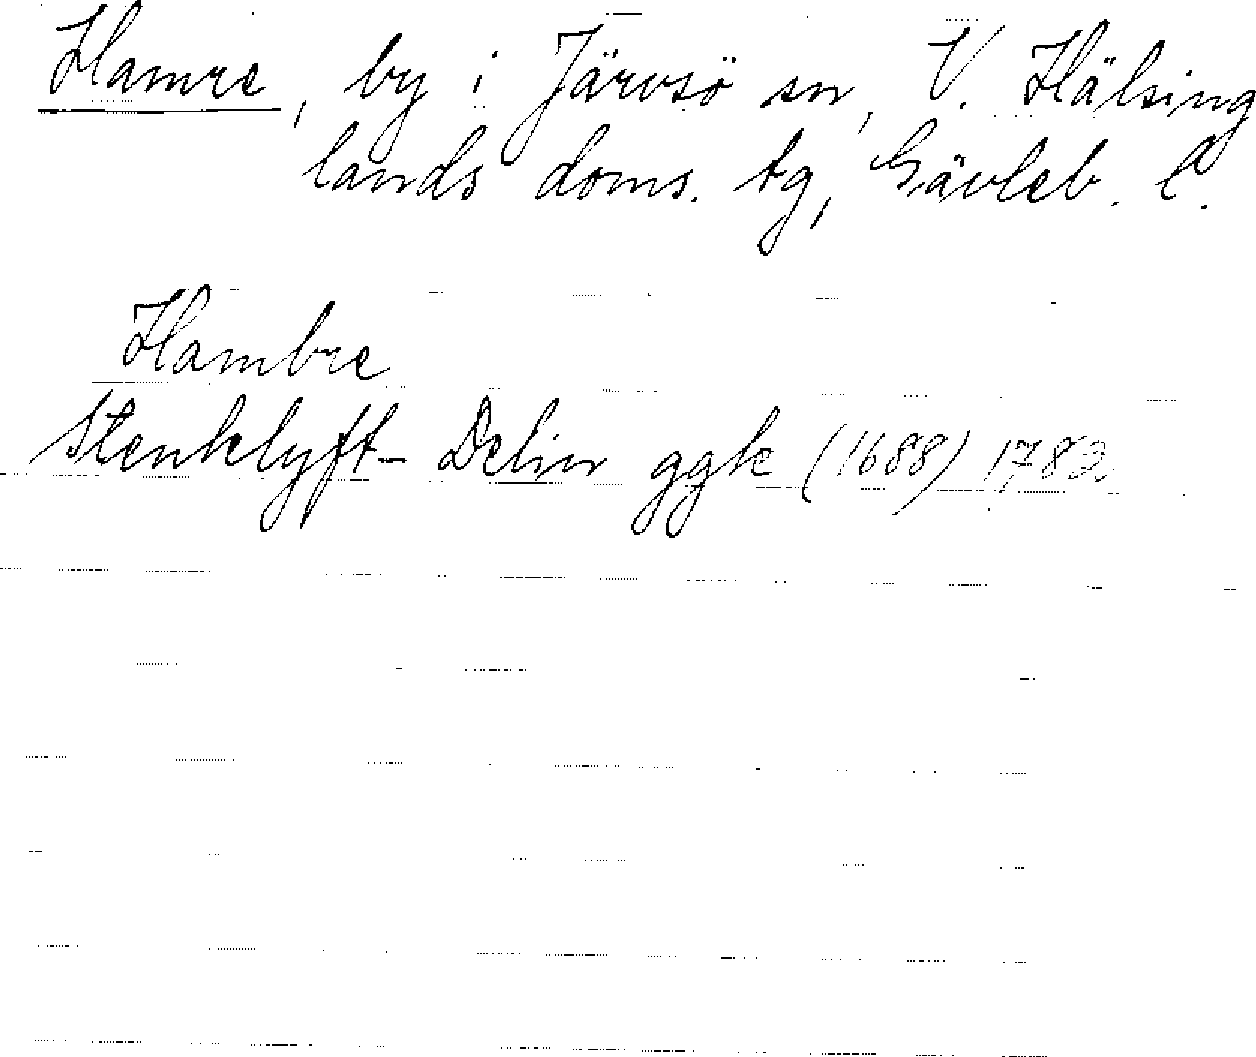 Hamre, by i Järvsö sn, V. Hälsing
lands doms. tg, Gävleb. l.
Hambre
Stenklyft- Delin ggk (1688) 1783.